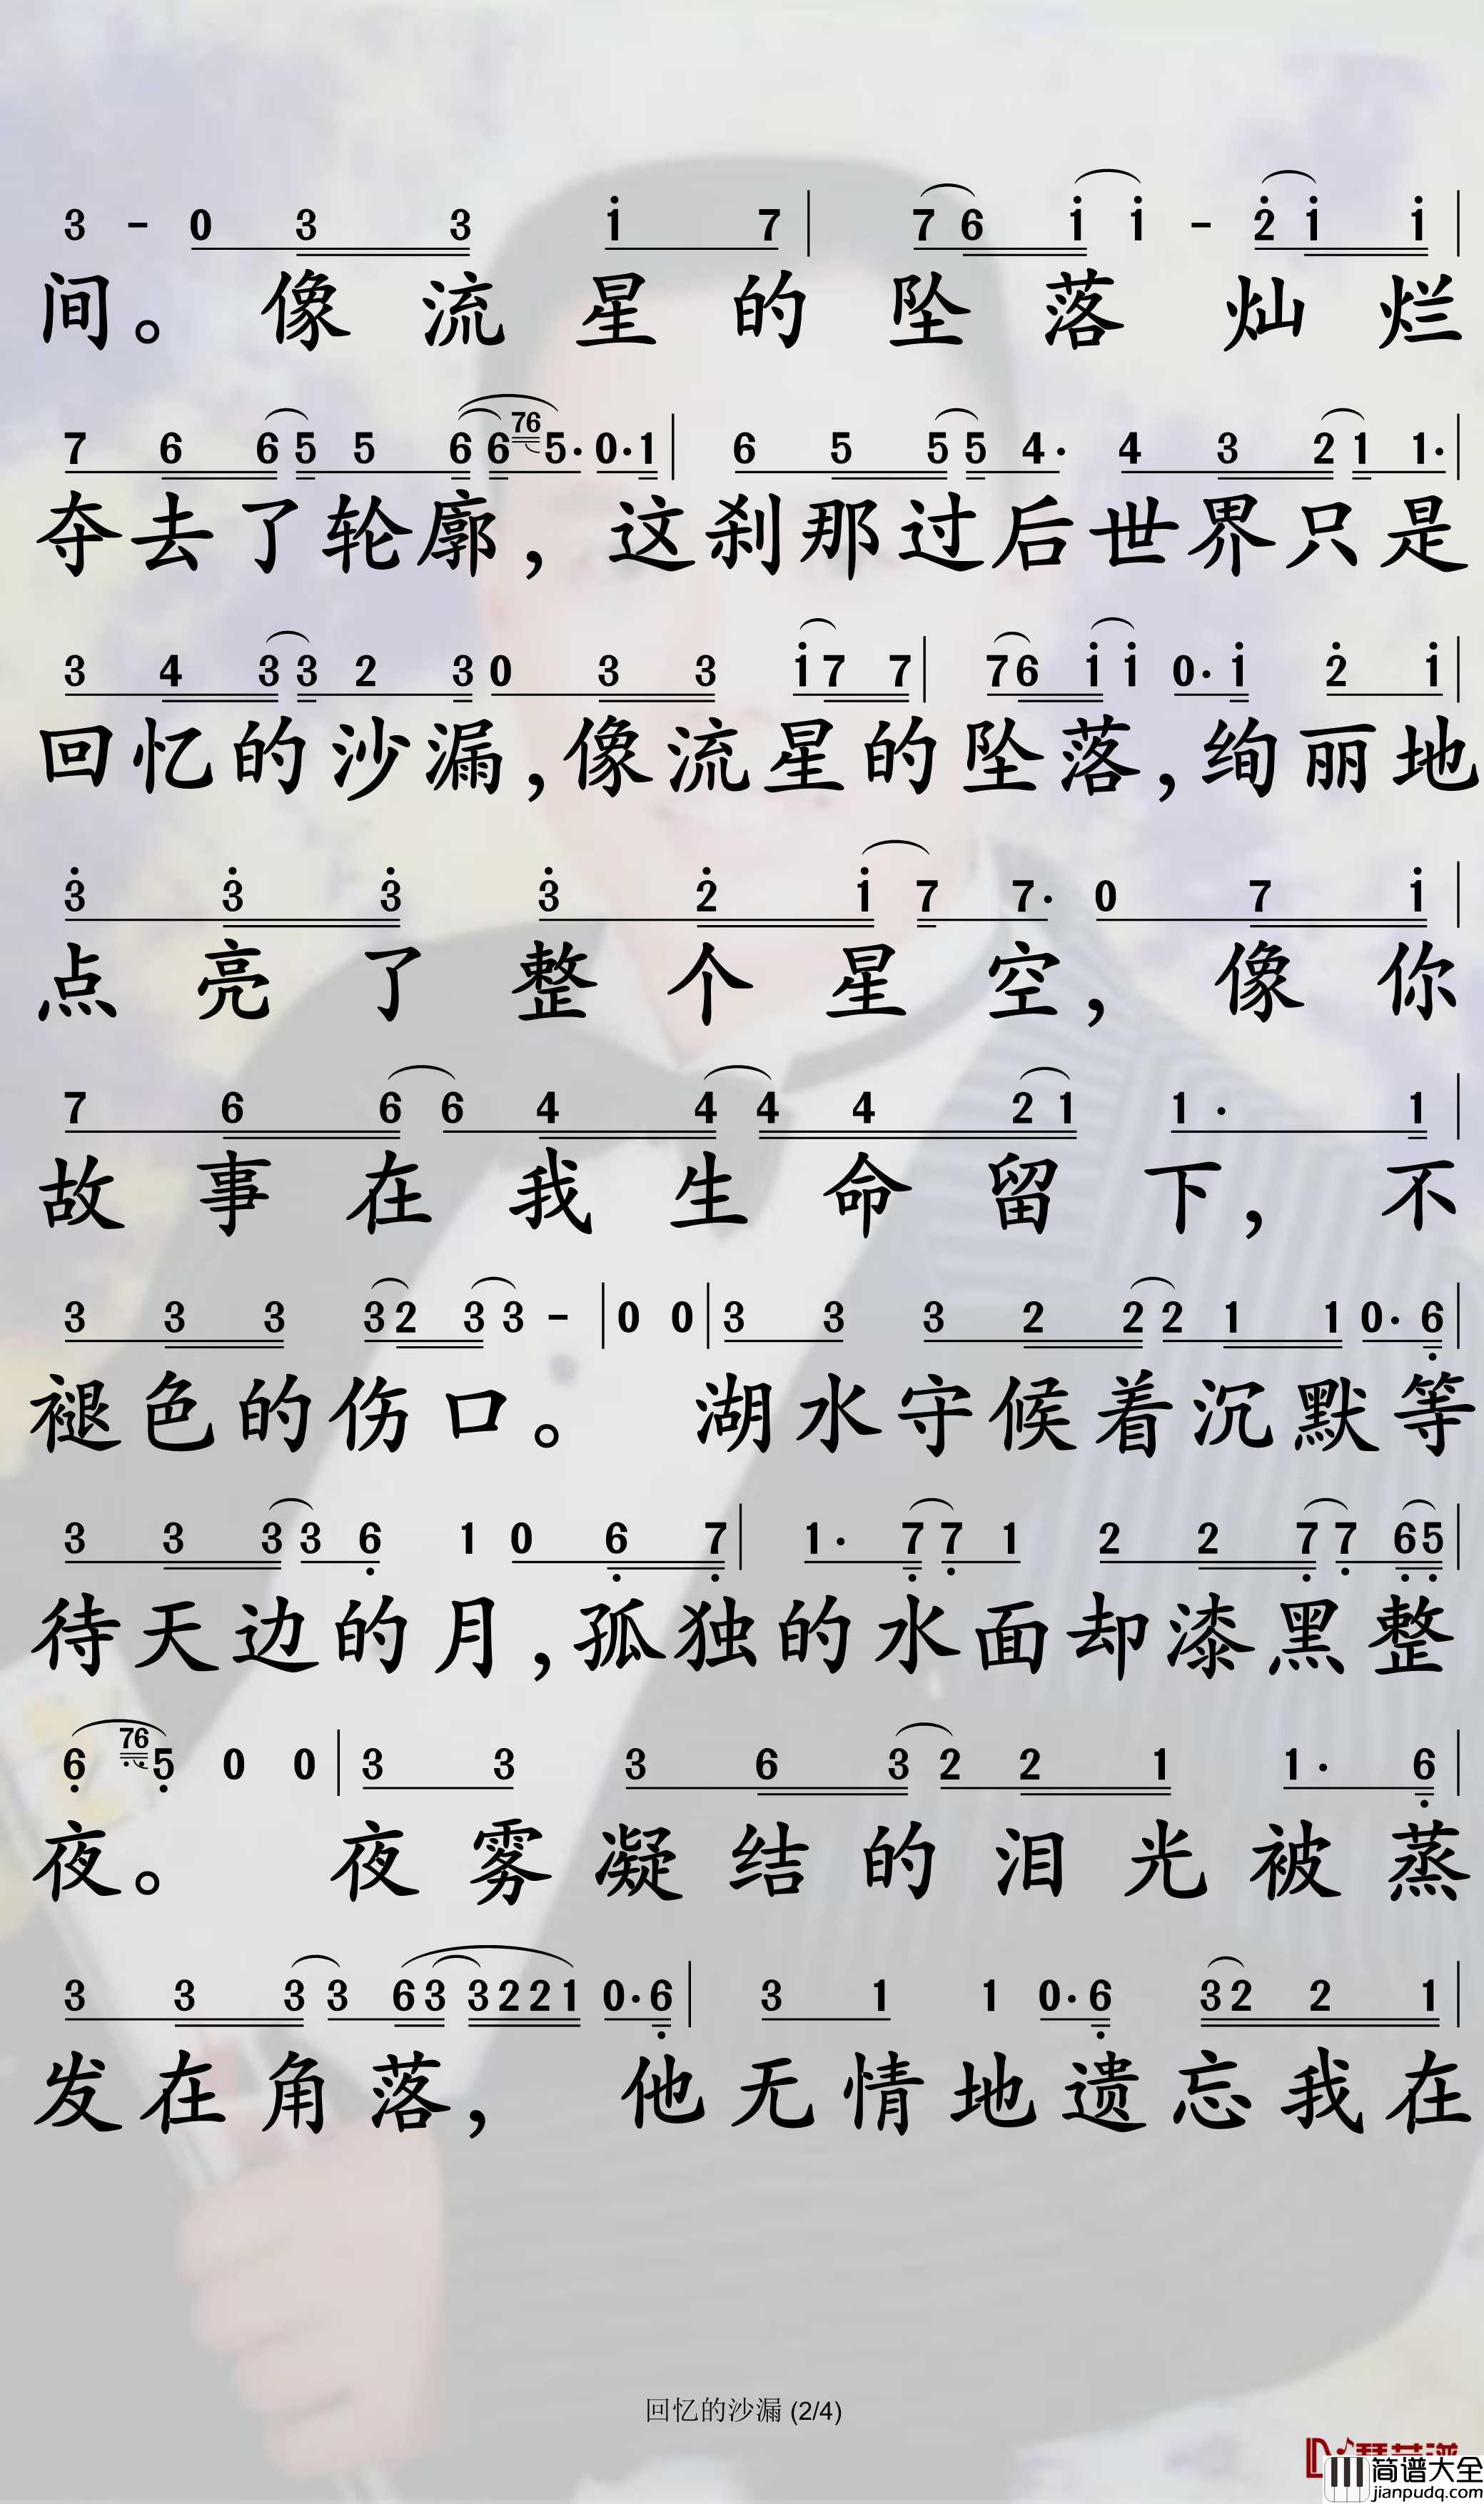 3 - 0 3 3 i 7 | 7 6 i i - 2 i i |
间。像流星的坠落灿烂
7 6 6 5 5 6 6 76 5· 0· 1 | 6 5 5 5 4· 4 3 2 1 1· |
夺去了轮廓，这刹那过后世界只是
3 4 3 3 2 3 0 3 3 i 7 7 | 7 6 i i 0· i 2 i |
回忆的沙漏,像流星的坠落,绚丽地
3 3 3 3 2 i 7 7· 0 7 i |
点亮了整个星空，像你
7 6 6 6 4 4 4 4 2 1 1· 1 |
故事在我生命留下，不
3 3 3 3 2 3 3 - | 0 0 | 3 3 3 2 2 2 1 1 0· 6 |
褪色的伤口。湖水守候着沉默等
3 3 3 3 6 1 0 6 7 | 1· 7 7 1 2 2 7 7 6 5 |
待天边的月,孤独的水面却漆黑整
6 76 5 0 0 | 3 3 3 6 3 2 2 1 1· 6 |
夜。夜雾凝结的泪光被蒸
3 3 3 3 6 3 3 2 2 1 0· 6 | 3 1 1 0· 6 3 2 2 1 |
发在角落，他无情地遗忘我在
回忆的沙漏 (2/4)
简谱大全
jianpudq.com